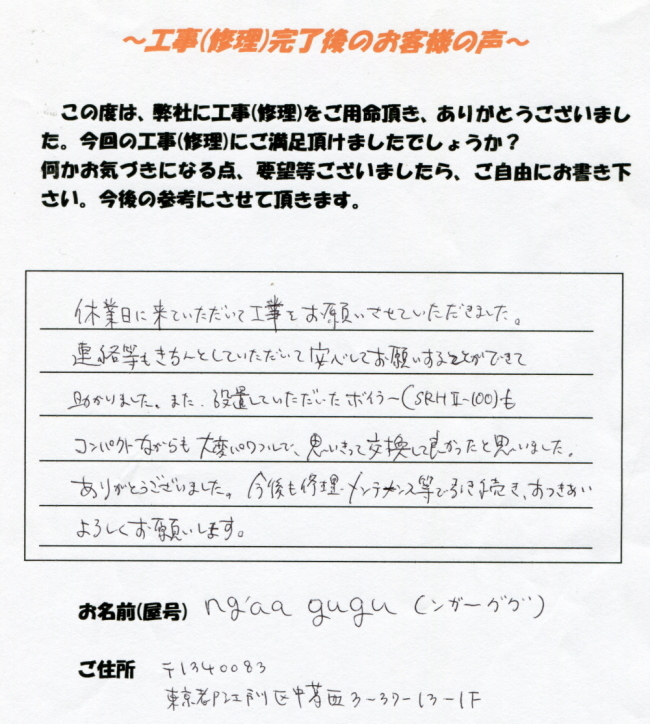 ～工事(修理)完了後のお客様の声～
この度は、弊社に工事(修理)をご用命頂き、ありがとうございまし
た。今回の工事(修理)にご満足頂けましたでしょうか？
何かお気づきになる点、要望等ございましたら、ご自由にお書き下
さい。今後の参考にさせて頂きます。
休業日に来ていただいて工事をお願いさせていただきました。
連絡等もきちんとしていただいて安心してお願いすることができて
助かりました。また、設置していただいたボイラー(SRHⅡ-100)も
コンパクトながらも大変パワフルで、思いきって交換して良かったと思いました。
ありがとうございました。今後も修理・メンテナンス等で引き続き、おつきあい
よろしくお願いします。
お名前(屋号) ng'aa gugu (ンガーググ)
ご住所 〒1340083
東京都江戸川区中葛西3-37-13-1F